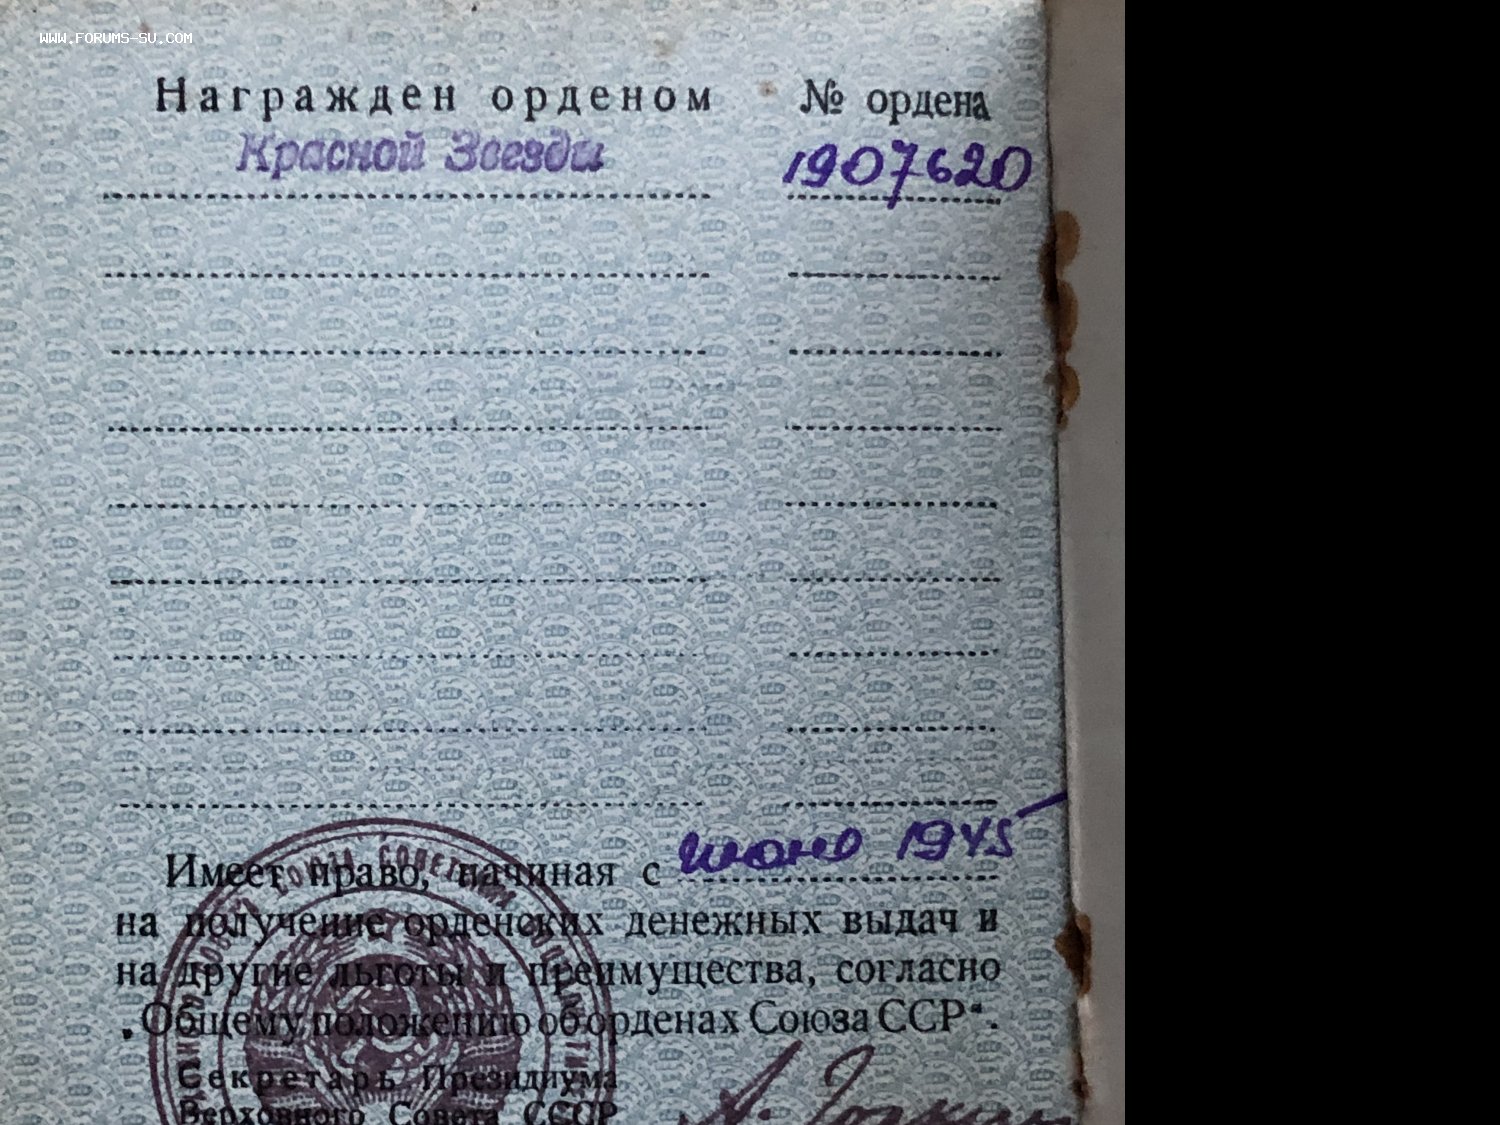 WWW.FORUMS-SU.COM
Награжден орденом № ордена
Красной Звезды 1907620
Имеет право, начиная с июно 1945
на получение орденских денежных выдач и
на другие льготы и преимущества, согласно
„Общему положению об орденах Союза ССР“.
Секретарь Президиума
Верховного Совета СССР